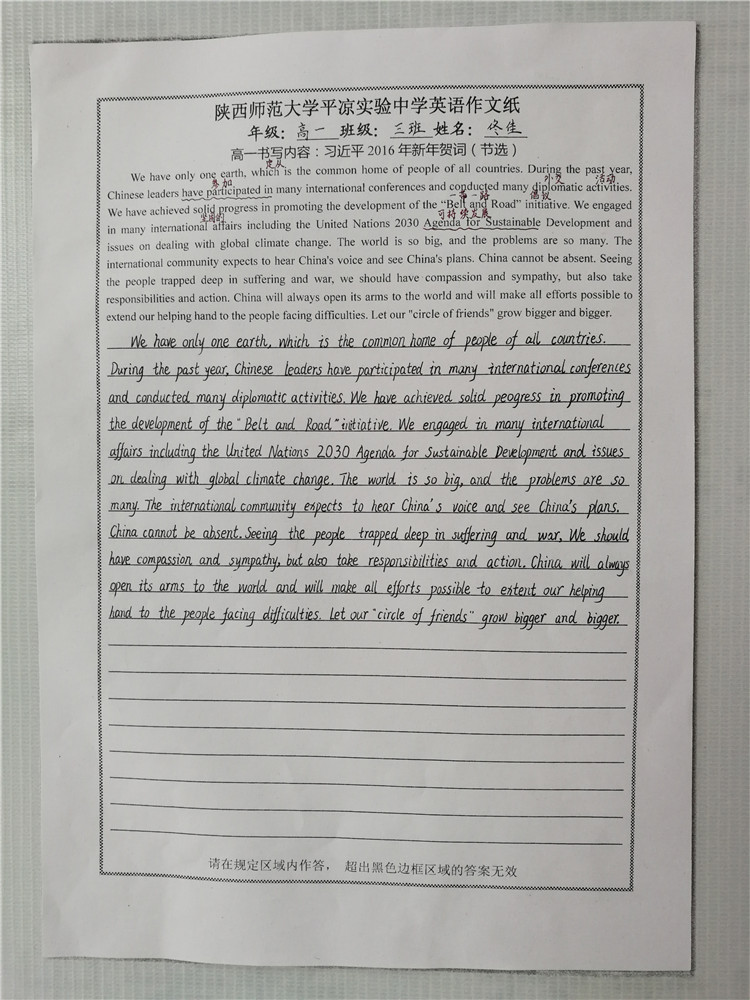 陕西师范大学平凉实验中学英语作文纸
年级：高一 班级：三班 姓名：佟佳
高一书写内容：习近平 2016 年新年贺词（节选）
定从
We have only one earth, which is the common home of people of all countries. During the past year,
参加 外交 活动
Chinese leaders have participated in many international conferences and conducted many diplomatic activities.
一带一路 倡议
We have achieved solid progress in promoting the development of the "Belt and Road" initiative. We engaged
坚固的 可持续发展
in many international affairs including the United Nations 2030 Agenda for Sustainable Development and
issues on dealing with global climate change. The world is so big, and the problems are so many. The
international community expects to hear China's voice and see China's plans. China cannot be absent. Seeing
the people trapped deep in suffering and war, we should have compassion and sympathy, but also take
responsibilities and action. China will always open its arms to the world and will make all efforts possible to
extend our helping hand to the people facing difficulties. Let our "circle of friends" grow bigger and bigger.
We have only one earth, which is the common home of people of all countries.
During the past year, Chinese leaders have participated in many international conferences
and conducted many diplomatic activities. We have achieved solid peogress in promoting
the development of the "Belt and Road" initiative. We engaged in many international
affairs including the United Nations 2030 Agenda for Sustainable Development and issues
on dealing with global climate change. The world is so big, and the problems are so
many. The international community expects to hear China's voice and see China's plans.
China cannot be absent. Seeing the people trapped deep in suffering and war, We should
have compassion and sympathy, but also take responsibilities and action. China will always
open its arms to the world and will make all efforts possible to extent our helping
hand to the people facing difficulties. Let our "circle of friends" grow bigger and bigger.
请在规定区域内作答，超出黑色边框区域的答案无效